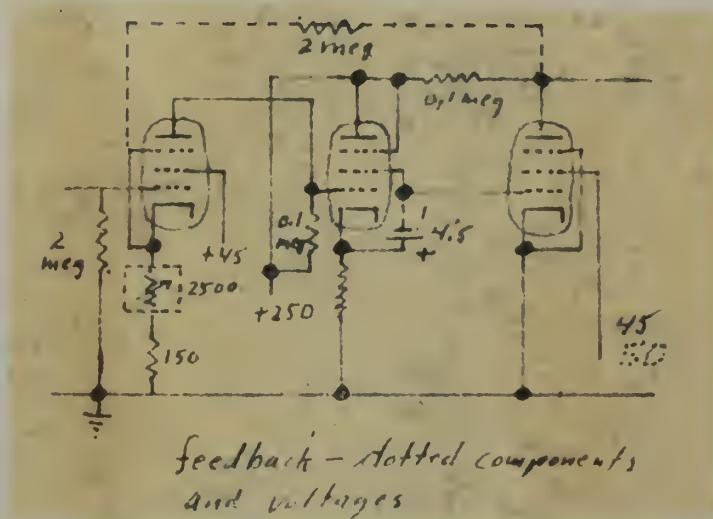 2 meg
0,1 meg
2
meg
+45
0.1
meg
4.5
+
2500
+250
150
45
50
feedback - dotted components
and voltages